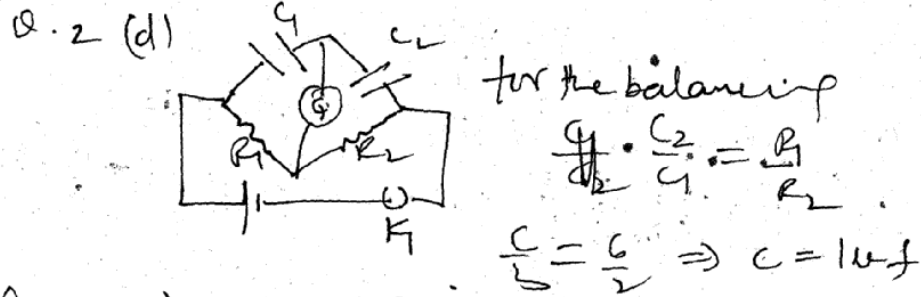 Q.2 (d)
C1 C2
G
R1 R2
K1
for the balancing
C2/C1 = R1/R2
C/3 = 6/2 ⇒ C = 1uf